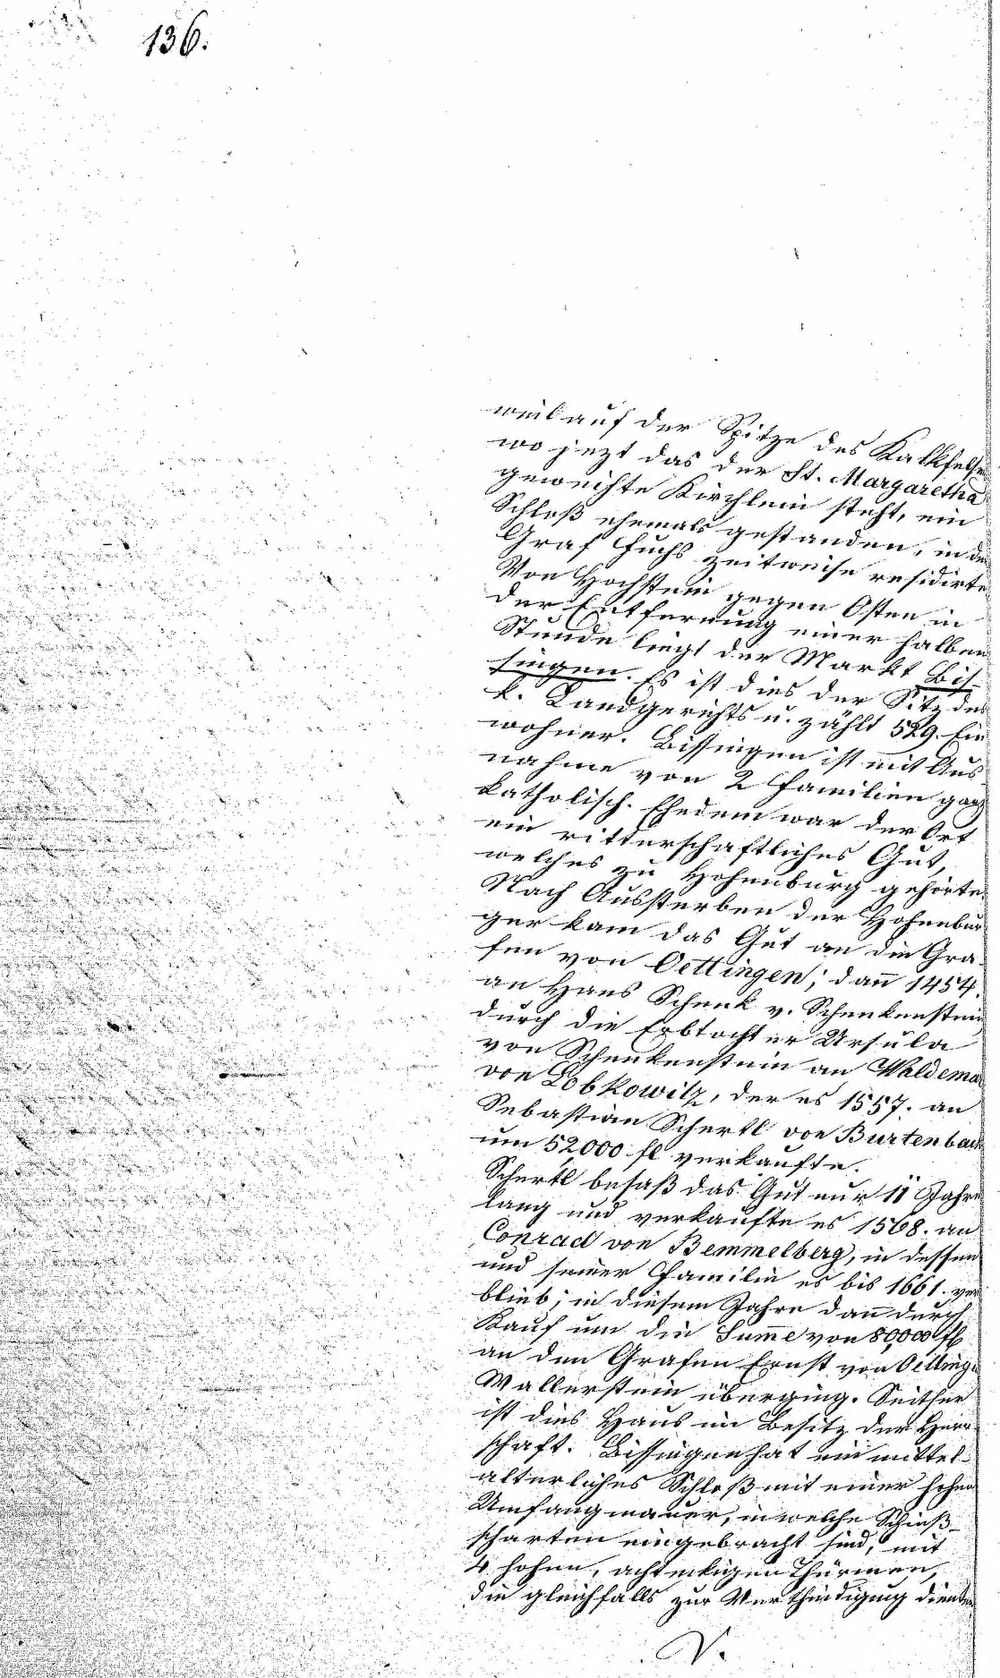 136.
weil auf der Spitze des Kalkfelsen
wo jezt das der St. Margaretha
geweihte Kirchlein steht, ein
Schloß ehemals gestanden, in dem
Graf Fuchs zeitweise residirte
Von Hochstein gegen Osten in
der Entfernung einer halben
Stunde liegt der Markt Bis-
singen. Es ist dies der Sitz des
k. Landgerichts u. zählt 529. Ein
wohner. Bissingen ist mit Aus
nahme von 2 Familien ganz
katholisch. Ehedem war der Ort
ein ritterschaftliches Gut,
welches zu Hohenburg gehörte.
Nach Aussterben der Hohenbur
ger kam das Gut an die Gra-
fen von Oettingen; dan̄ 1454.
an Hans Schenk v. Schenkenstein
durch die Erbtochter Ursula
von Schenkenstein an Waldemar
von Lobkowitz, der es 1557. an
Sebastian Schertl von Burtenbach
um 52,000 fl verkaufte.
Schertl besaß das Gut nur 11 Jahre
lang und verkaufte es 1568. an
Conrad von Bemmelberg, in dessen
und seiner Familie es bis 1661. ver
blieb; in diesem Jahre dan̄ durch
Kauf um die Sum̄e von 80,000 fl
an den Grafen Ernst von Oettingen
Wallerstein überging. Seither
ist dies Haus im Besitz der Herr
schaft. Bissingen hat ein mittel-
alterliches Schloß mit einer hohen
Umfangmauer, in welche Schieß-
scharten eingebracht sind, mit
4 hohen, achteckigen Thürmen,
die gleichfalls zur Vertheidigung dienten
V.